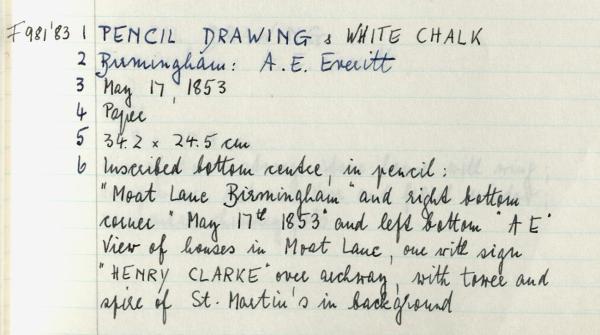 F981'83 1 PENCIL DRAWING & WHITE CHALK
2 Birmingham: A.E. Everitt
3 May 17, 1853
4 Paper
5 34.2 x 24.5 cm
6 Inscribed bottom centre, in pencil:
"Moat Lane Birmingham" and right bottom
corner "May 17th 1853" and left bottom "A E"
View of houses in Moat Lane, one with sign
"HENRY CLARKE" over archway, with tower and
spire of St. Martin's in background